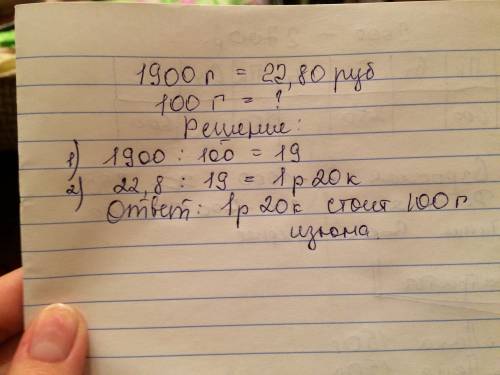 1900 г = 22,80 руб
100 г = ?
Решение:
1) 1900 : 100 = 19
2) 22,8 : 19 = 1р 20к
Ответ: 1р 20к стоит 100 г
изюма.